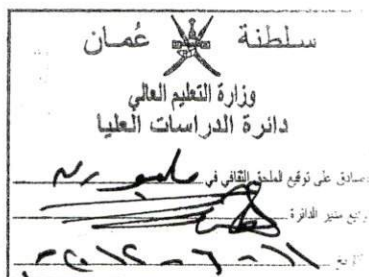 سلطنة عُمان
وزارة التعليم العالي
دائرة الدراسات العليا
نصادق على توقيع الملحق الثقافي في
توقيع مدير الدائرة
التاريخ